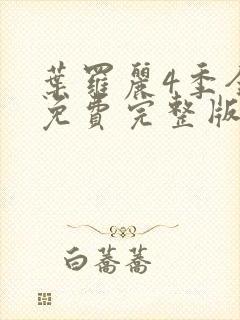 葉羅麗4季全
免費完整版
白蕎蕎